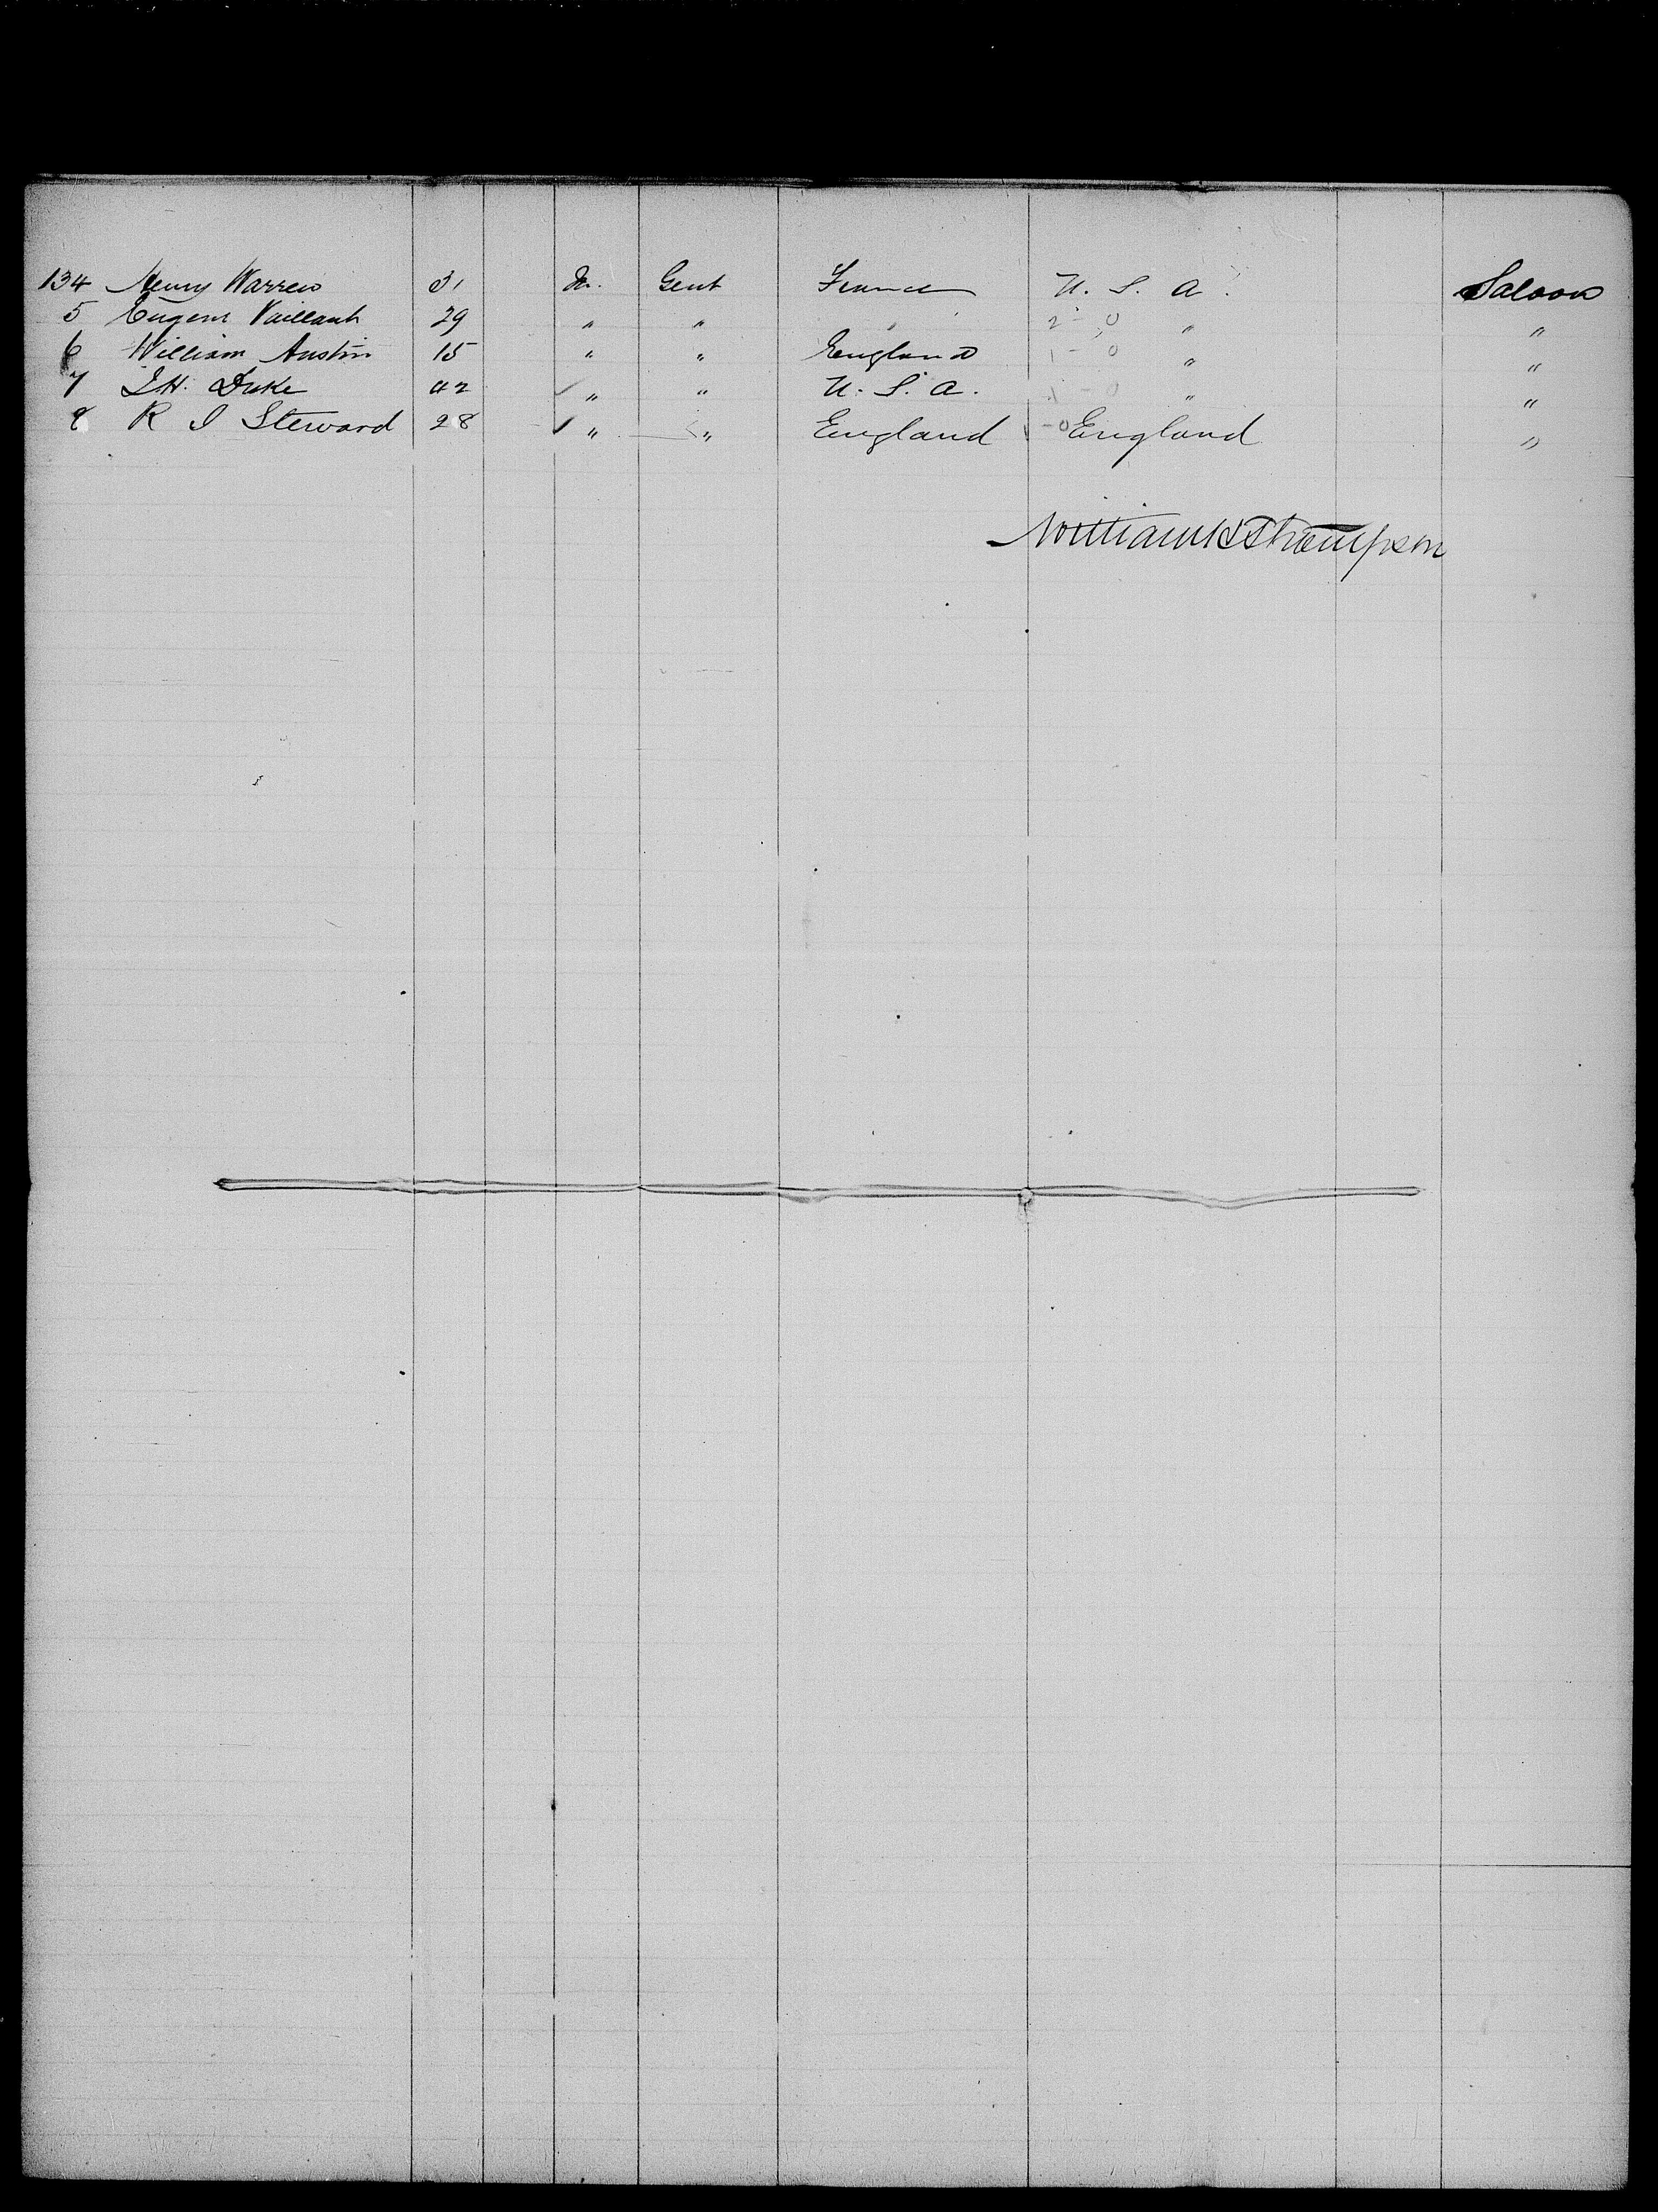 134 Henry Warren 31 M. Gent France U. S. A. Saloon
5 Eugene Vaillant 29 " " " 2 - 0 " "
6 William Austin 15 " " England 1 - 0 " "
7 H. Duke 42 " " U. S. A. 1 - 0 " "
8 R I Steward 28 " " England - 0 England "
William Thompson